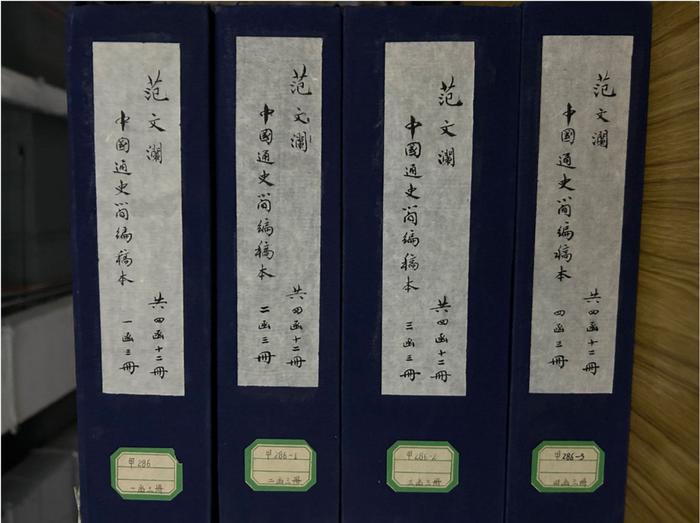 范文瀾
中國通史简編稿本
共四函十二冊
一函三冊
甲286
一函三冊
范文瀾
中國通史简編稿本
共四函十二冊
二函三冊
甲286-1
二函三冊
范文瀾
中國通史简編稿本
共四函十二冊
三函三冊
甲286-2
三函三冊
范文瀾
中國通史简編稿本
共四函十二冊
四函三冊
甲286-3
四函三冊